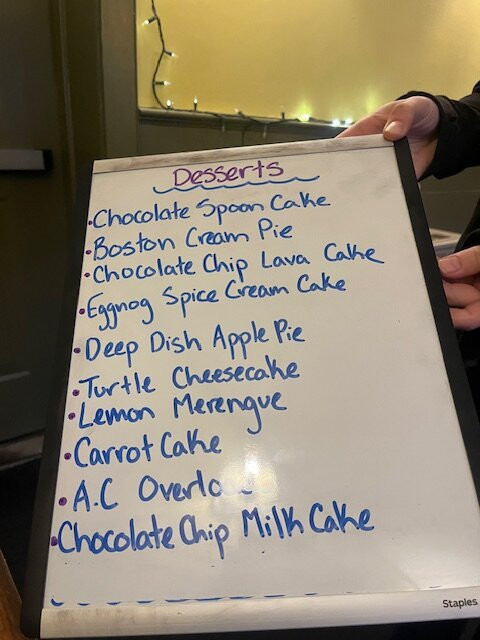 Desserts
•Chocolate Spoon Cake
•Boston Cream Pie
•Chocolate Chip Lava Cake
•Eggnog Spice Cream Cake
•Deep Dish Apple Pie
•Turtle Cheesecake
•Lemon Merengue
•Carrot Cake
•A.C
•Chocolate Chip Milk Cake
Staples